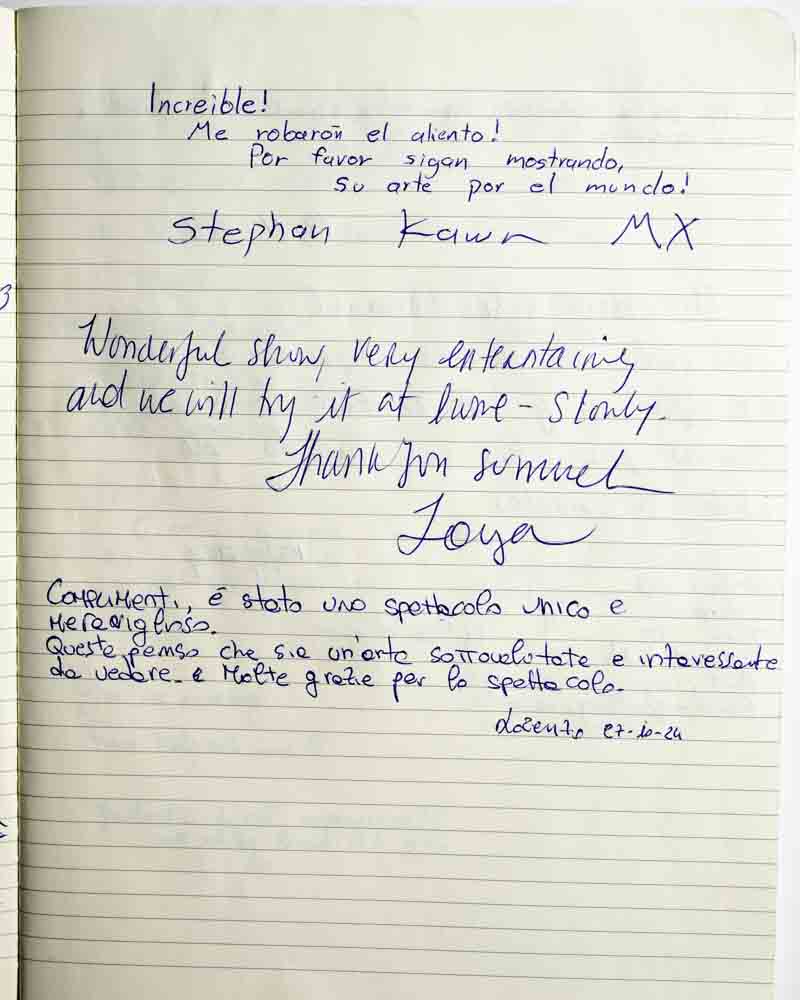 Increible!
Me robarón el aliento!
Por favor sigan mostrando,
su arte por el mundo!
Stephan Kawn MX
3
Wonderful show, very entertaining
and we will try it at home - slowly.
Thank you Samuel
Complimenti, é stato uno spettacolo unico e
meraviglioso.
Questa penso che sia un'arte sottovalutata e interessante
da vedere. e Molte grazie per lo spettacolo.
Lorenzo 27-10-24